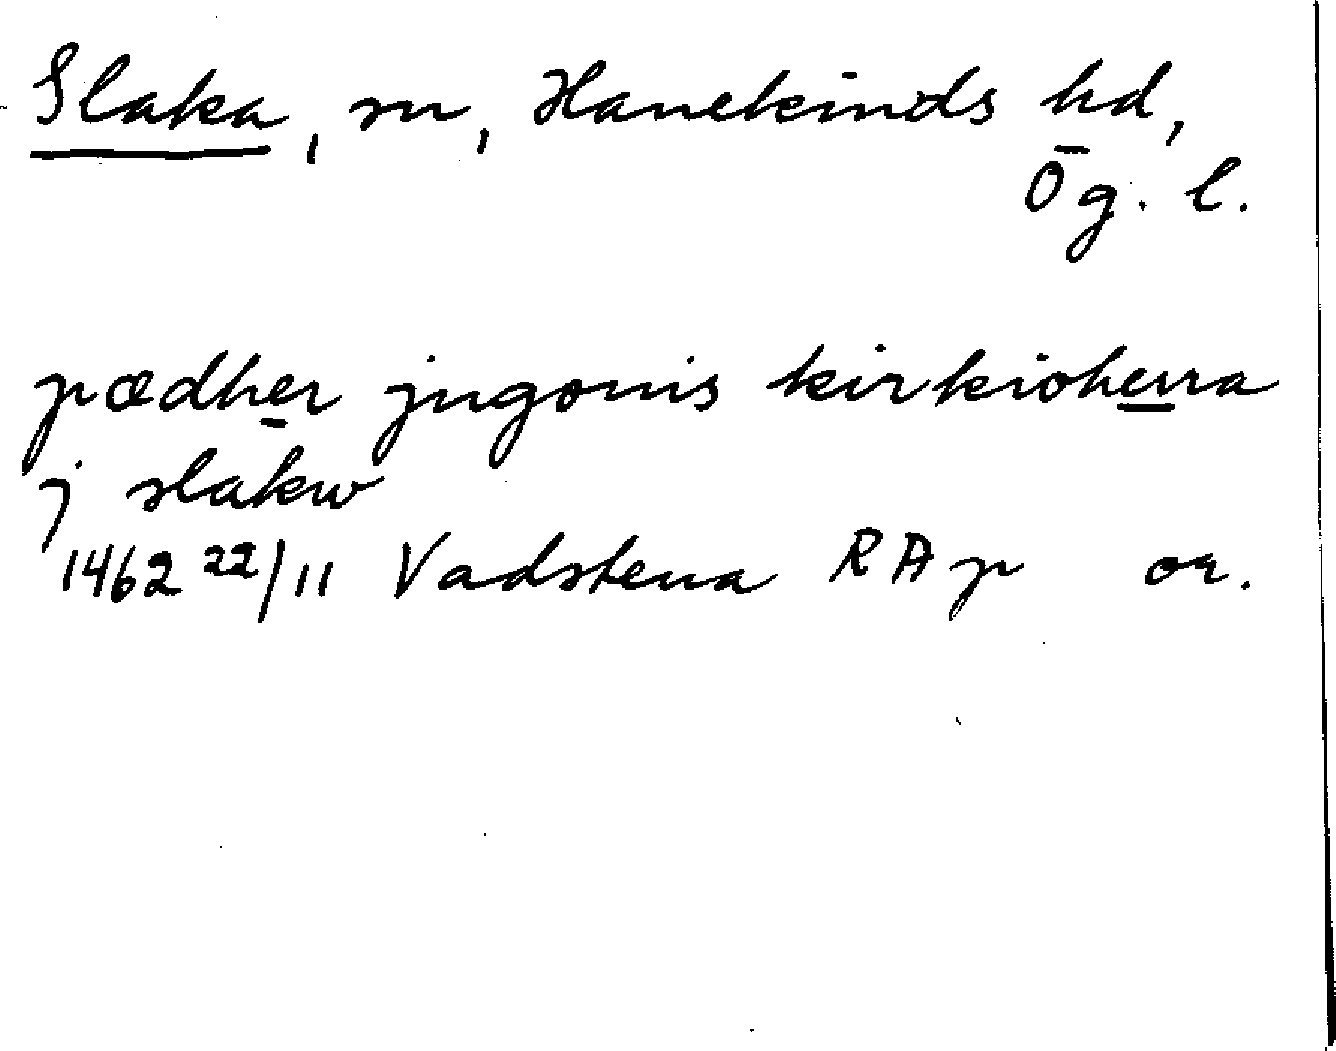 Slaka, sn, Hanekinds hd,
Ög. l.
pædher jngonis kirkioherra
j slakw
1462 22/11 Vadstena RAp or.